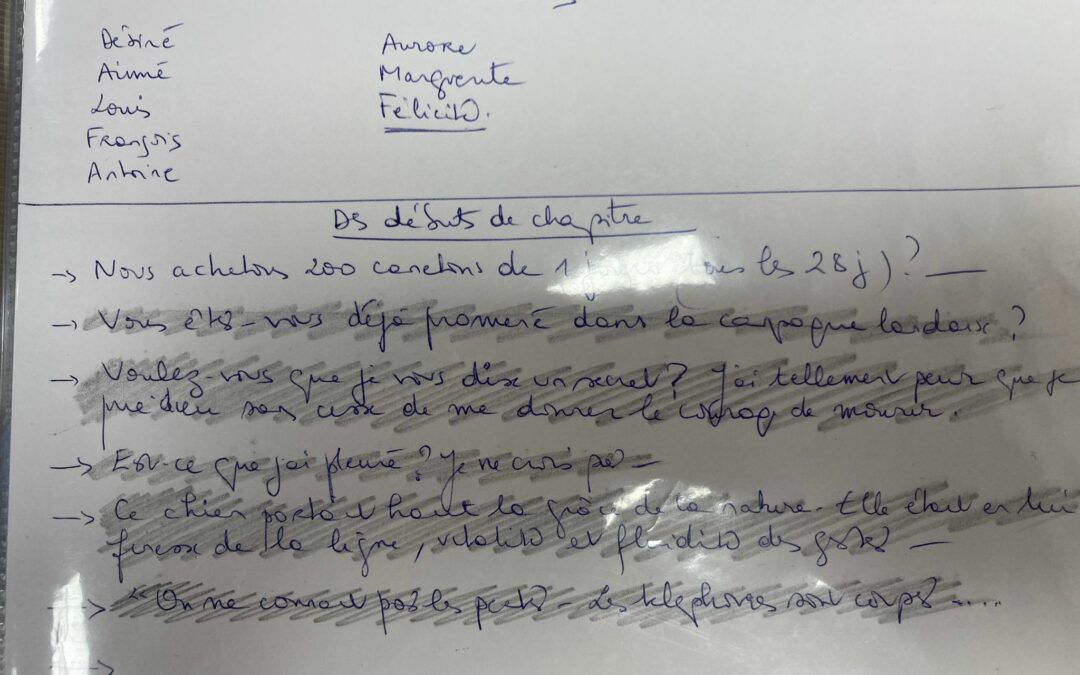 Désiré
Aimé
Louis
François
Antoine
Aurore
Marguerite
Félicité.
Des débuts de chapitre
→ Nous achetons 200 canetons de 1 jour (tous les 28j)? —
→ Vous êtes-vous déjà promené dans la campagne landaise?
→ Voulez-vous que je vous dise un secret? J'ai tellement peur que je
prie dieu sans cesse de me donner le courage de mourir.
→ Est-ce que j'ai pleuré? Je ne crois pas —
→ Ce chien portait haut la grâce de la nature. Elle était en lui
finesse de la ligne, vitalité et fluidité des gestes —
→ "On ne connait pas les pertes - Les téléphones sont coupés .....
→